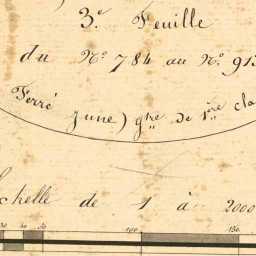 3.e Feuille
du N.o 784 au N.o 913
Ferré
June) g.tre de 1.ere cla
chelle de 1 à 2000
50 100 150